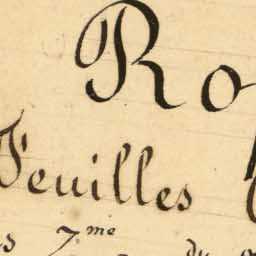 Ro
Feuilles
s 7me du